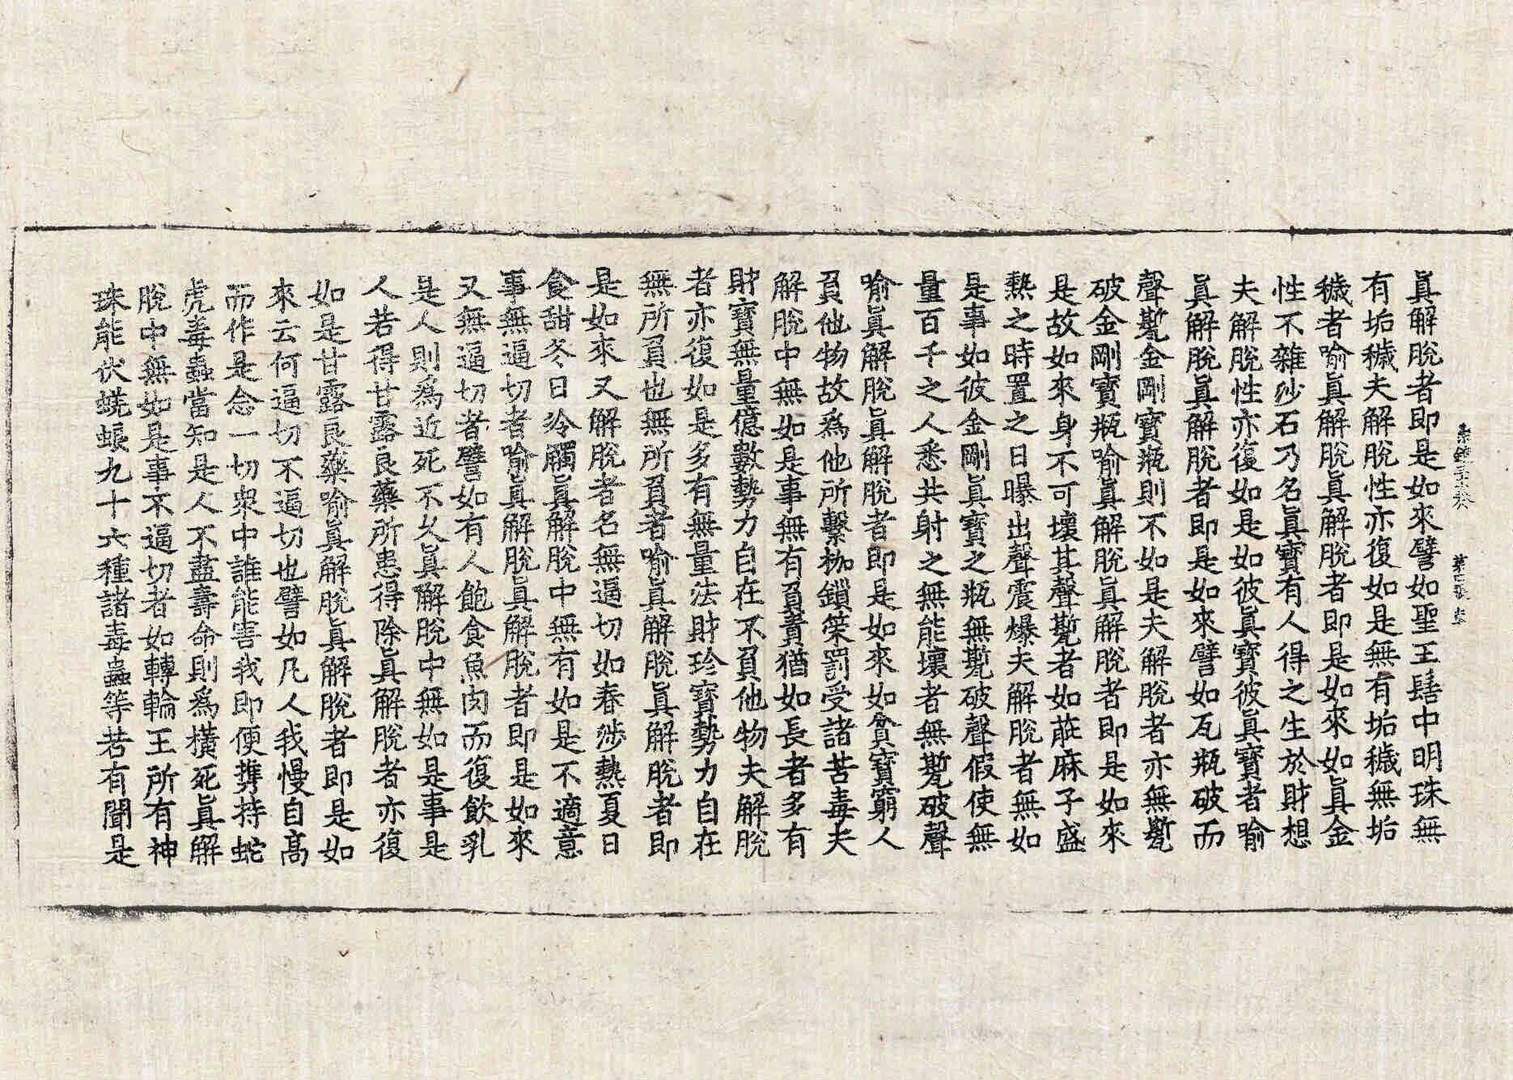 眞解脫者即是如來譬如聖王髻中明珠無
有垢穢夫解脫性亦復如是無有垢穢無垢
穢者喻眞解脫眞解脫者即是如來如眞金
性不雜沙石乃名眞寶有人得之生於財想
夫解脫性亦復如是如彼眞寶彼眞寶者喻
眞解脫眞解脫者即是如來譬如瓦瓶破而
聲㽄金剛寶瓶則不如是夫解脫者亦無㽄
破金剛寶瓶喻眞解脫眞解脫者即是如來
是故如來身不可壞其聲㽄者如萞麻子盛
熱之時置之日曝出聲震爆夫解脫者無如
是事如彼金剛眞寶之瓶無㽄破聲假使無
量百千之人悉共射之無能壞者無㽄破聲
喻眞解脫眞解脫者即是如來如貧寶窮人
負他物故爲他所繫枷鎖策罰受諸苦毒夫
解脫中無如是事無有負責猶如長者多有
財寶無量億數勢力自在不負他物夫解脫
者亦復如是多有無量法財珍寶勢力自在
無所負也無所負者喻眞解脫眞解脫者即
是如來又解脫者名無逼切如春涉熱夏日
食甜冬日冷觸眞解脫中無有如是不適意
事無逼切者喻眞解脫眞解脫者即是如來
又無逼切者譬如有人飽食魚肉而復飲乳
是人則爲近死不久眞解脫中無如是事是
人若得甘露良藥所患得除眞解脫者亦復
如是甘露良藥喻眞解脫眞解脫者即是如
來云何逼切不逼切也譬如凡人我慢自高
而作是念一切衆中誰能害我即便携持蛇
虎毒蟲當知是人不盡壽命則爲橫死眞解
脫中無如是事不逼切者如轉輪王所有神
珠能伏蜣蜋九十六種諸毒蟲等若有聞是